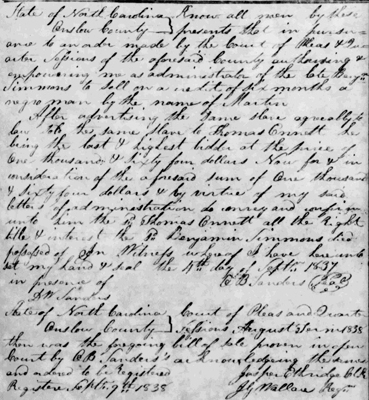 State of North Carolina Know all men by these
Onslow County presents that in pursu-
ance to an order made by the Court of Pleas & Qu-
arter Sessions of the aforesaid County authorising &
empowering me as administrator of the late Benjn
Simmons to sell on a credit of six months a
negro man by the name of Martin
After advertising the same slave agreeably to
law sold the same slave to Thomas Ennett he
being the last & highest bidder at the price of
One thousand & sixty four dollars Now for & in
consideration of the aforesaid sum of One thousand
& sixty four dollars & by virtue of my said
letters of administration do convey and confirm
unto him the sd Thomas Ennett all the Right
title & interest the sd Benjamin Simmons died
possessed of In Witness whereof I have hereunto
set my hand & seal the day of Septr 1837
in presence of C B Sanders Seal
D W Sanders
State of North Carolina Court of Pleas and Quarter
Onslow County Sessions August Term 1838
then was the foregoing bill of sale proven in open
Court by C B Sanders's acknowledging the same
and ordered to be Registered
Jasper Ethridge Clk
Registered Septr 9th 1838 J G Wallace Regr